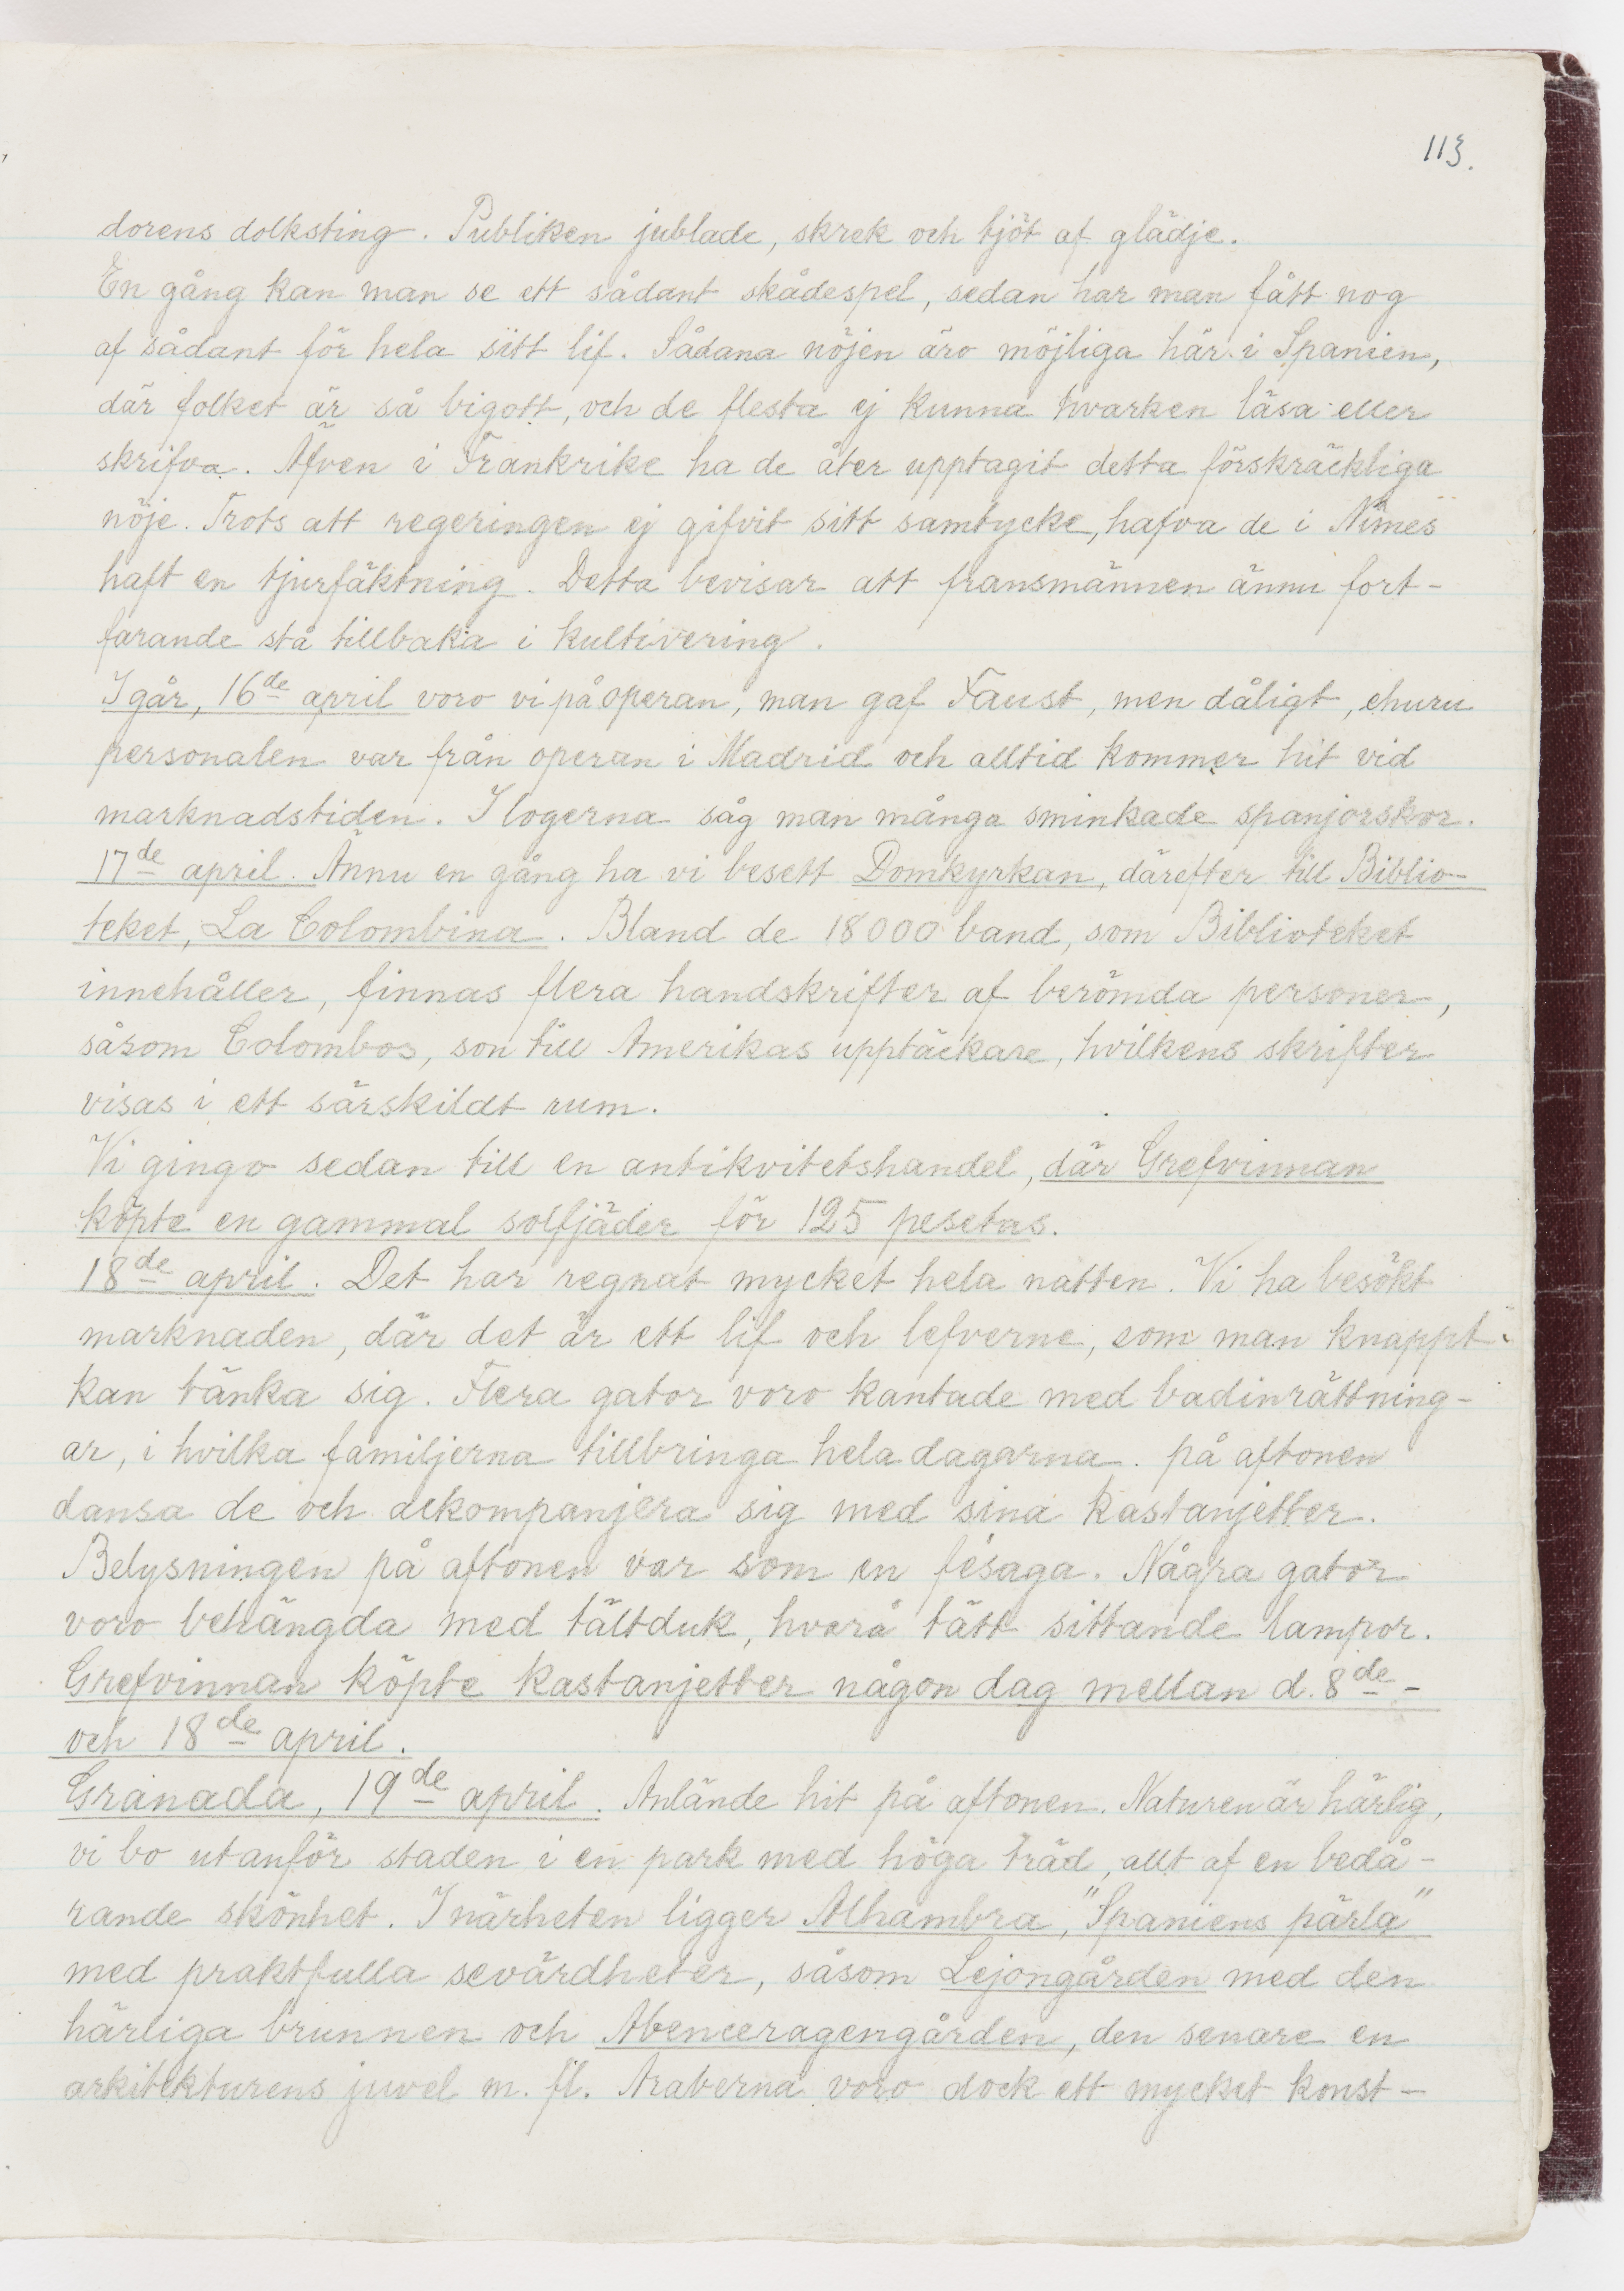 113.
dorens dolksting. Publiken jublade, skrek och tjöt af glädje.
En gång kan man se ett sådant skådespel, sedan har man fått nog
af sådant för hela sitt lif. Sådana nöjen äro möjliga här i Spanien,
där folket är så bigott, och de flesta ej kunna hvarken läsa eller
skrifva. Äfven i Frankrike ha de åter upptagit detta förskräckliga
nöje. Trots att regeringen ej gifvit sitt samtycke, hafva de i Nîmes
haft en tjurfäktning. Detta bevisar att fransmännen ännu fort-
farande stå tillbaka i kultivering.
I går, 16de april voro vi på operan, man gaf Faust, men dåligt, ehuru
personalen var från operan i Madrid och alltid kommer hit vid
marknadstiden. I logerna såg man många sminkade spanjorskor.
17de april. Ännu en gång ha vi besett Domkyrkan, därefter till Biblio-
teket, La Colombina. Bland de 18000 band, som Biblioteket
innehåller, finnas flera handskrifter af berömda personer,
såsom Colombos, son till Amerikas upptäckare, hvilkens skrifter
visas i ett särskildt rum.
Vi gingo sedan till en antikvitetshandel, där Grefvinnan
köpte en gammal solfjäder för 125 pesetas.
18de april. Det har regnat mycket hela natten. Vi ha besökt
marknaden, där det är ett lif och lefverne, som man knappt
kan tänka sig. Flera gator voro kantade med badinrättning-
ar, i hvilka familjerna tillbringa hela dagarna. på aftonen
dansa de och ackompanjera sig med sina kastanjetter.
Belysningen på aftonen var som en fésaga. Några gator
voro behängda med tältduk, hvarå tätt sittande lampor.
Grefvinnan köpte kastanjetter någon dag mellan d. 8de-
och 18de april.
Granada, 19de april. Anlände hit på aftonen. Naturen är härlig,
vi bo utanför staden i en park med höga träd, allt af en bedå-
rande skönhet. I närheten ligger Alhambra, "Spaniens pärla"
med praktfulla sevärdheter, såsom Lejongården med den
härliga brunnen och Abenceragengården, den senare en
arkitekturens juvel m. fl. Araberna voro dock ett mycket konst-